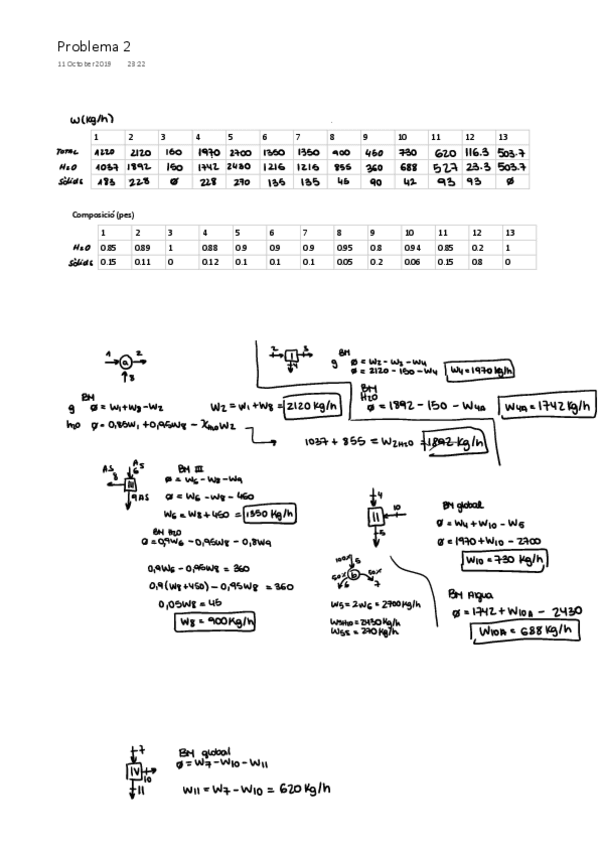 Problema 2
11 October 2019 23:22
W(kg/h)
1 2 3 4 5 6 7 8 9 10 11 12 13
TOTAL 1220 2120 150 1970 2700 1350 1350 900 450 730 620 116.3 503.7
H2O 1037 1892 150 1742 2430 1216 1216 855 360 688 527 23.3 503.7
Sòlids 183 228 ∅ 228 270 135 135 45 90 42 93 93 ∅
Composició (pes)
1 2 3 4 5 6 7 8 9 10 11 12 13
H2O 0.85 0.89 1 0.88 0.9 0.9 0.9 0.95 0.8 0.94 0.85 0.2 1
Sòlids 0.15 0.11 0 0.12 0.1 0.1 0.1 0.05 0.2 0.06 0.15 0.8 0
1 a 2
8
BM
g ∅ = W1+W8-W2
W2 = W1+W8 = 2120 kg/h
h2o ∅ = 0,85W1 + 0,95W8 - XH2O W2
1037 + 855 = W2H2O = 1892 kg/h
2 I 3
4
BM
g ∅ = W2 - W3 - W4
∅ = 2120 - 150 - W4
W4 = 1970 kg/h
BM
H2O
∅ = 1892 - 150 - W4A
W4A = 1742 kg/h
AS AS
8 6
III
9 AS
BM III
∅ = W6 - W8 - W9
∅ = W6 - W8 - 450
W6 = W8 + 450 = 1350 kg/h
BM H2O
∅ = 0,9W6 - 0,95W8 - 0,8W9
0,9W6 - 0,95W8 = 360
0,9(W8+450) - 0,95W8 = 360
0,05W8 = 45
W8 = 900 kg/h
4
II 10
5
100% 5
50% b 50%
6 7
W5 = 2W6 = 2700 kg/h
W5H2O = 2430 kg/h
W5S = 270 kg/h
BM global
∅ = W4 + W10 - W5
∅ = 1970 + W10 - 2700
W10 = 730 kg/h
BM Aigua
∅ = 1742 + W10A - 2430
W10A = 688 kg/h
7
IV
10
11
BM global
∅ = W7 - W10 - W11
W11 = W7 - W10 = 620 kg/h